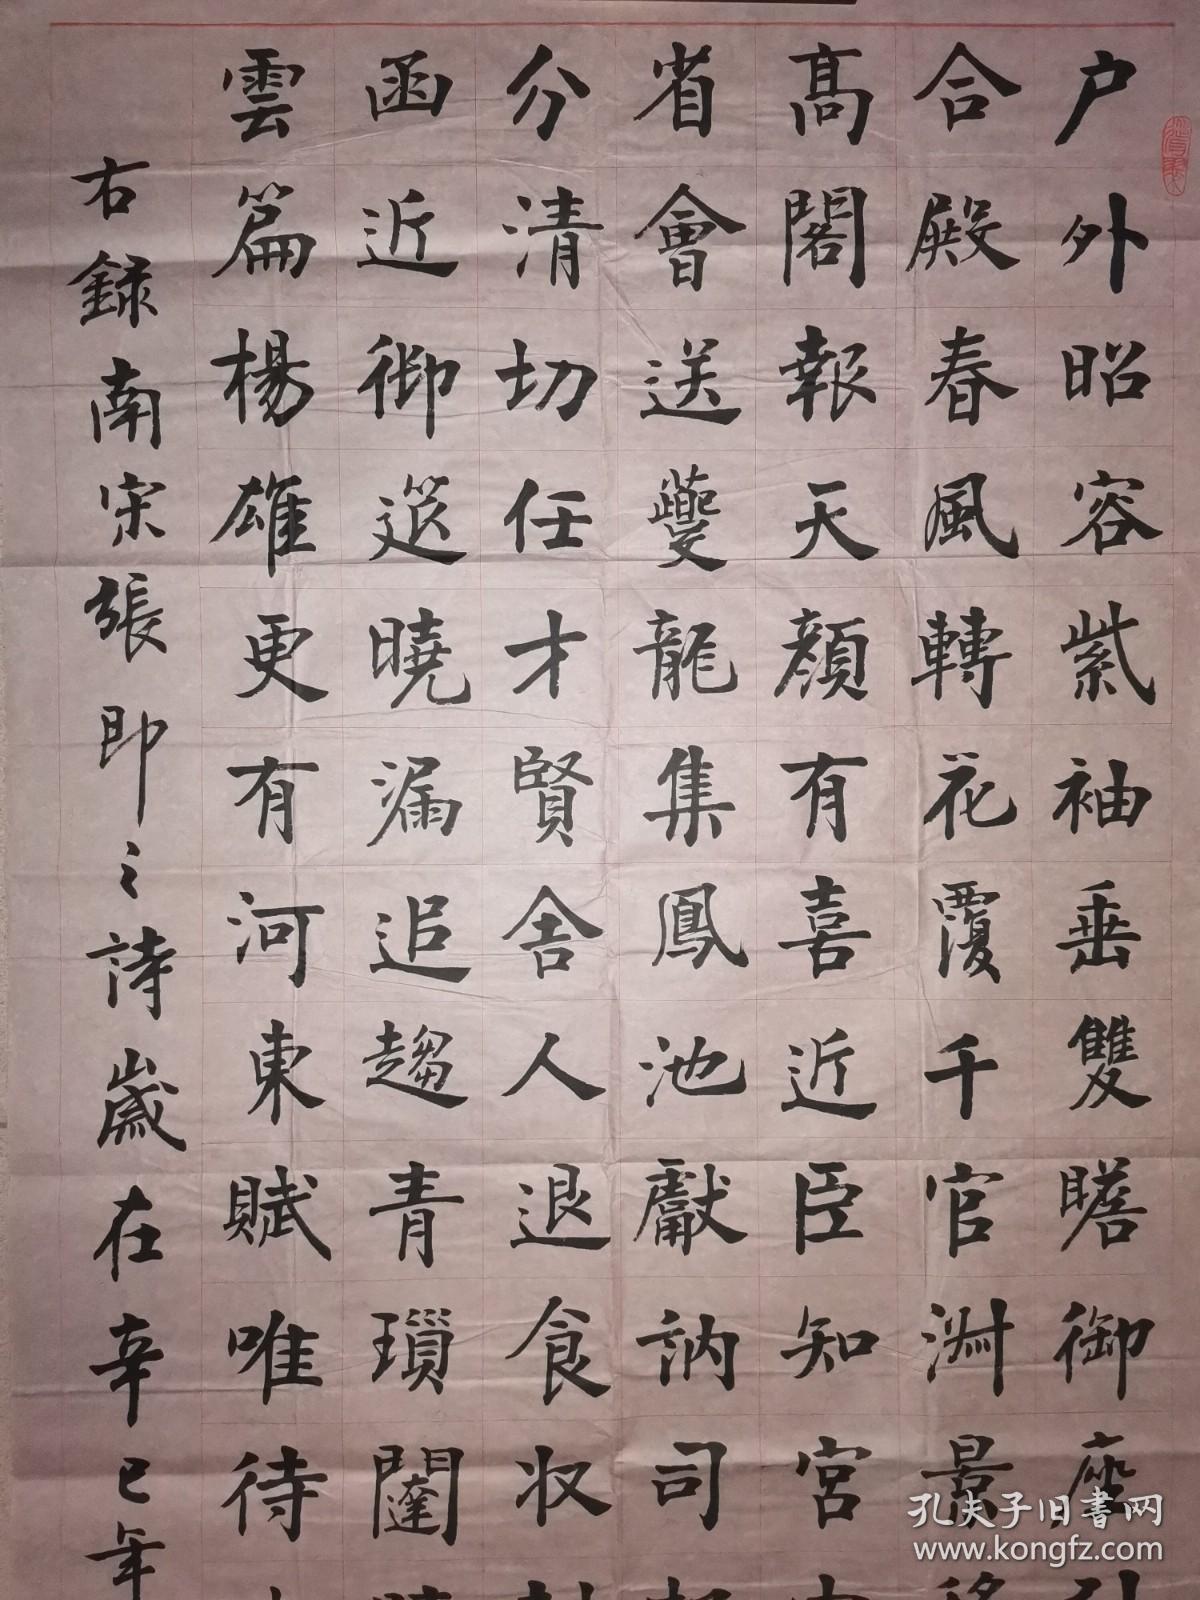 户外昭容紫袖垂雙瞻御座
合殿春風轉花覆千官淑景
髙閣報天顔有喜近臣知宮
省會送夔龍集鳳池獻訥司
分清切任才賢舍人退食收
函近御筵曉漏追趨青瑣闥
雲篇楊雄更有河東賦唯待
右録南宋張即之詩歲在辛巳年
孔夫子旧书网
www.kongfz.com